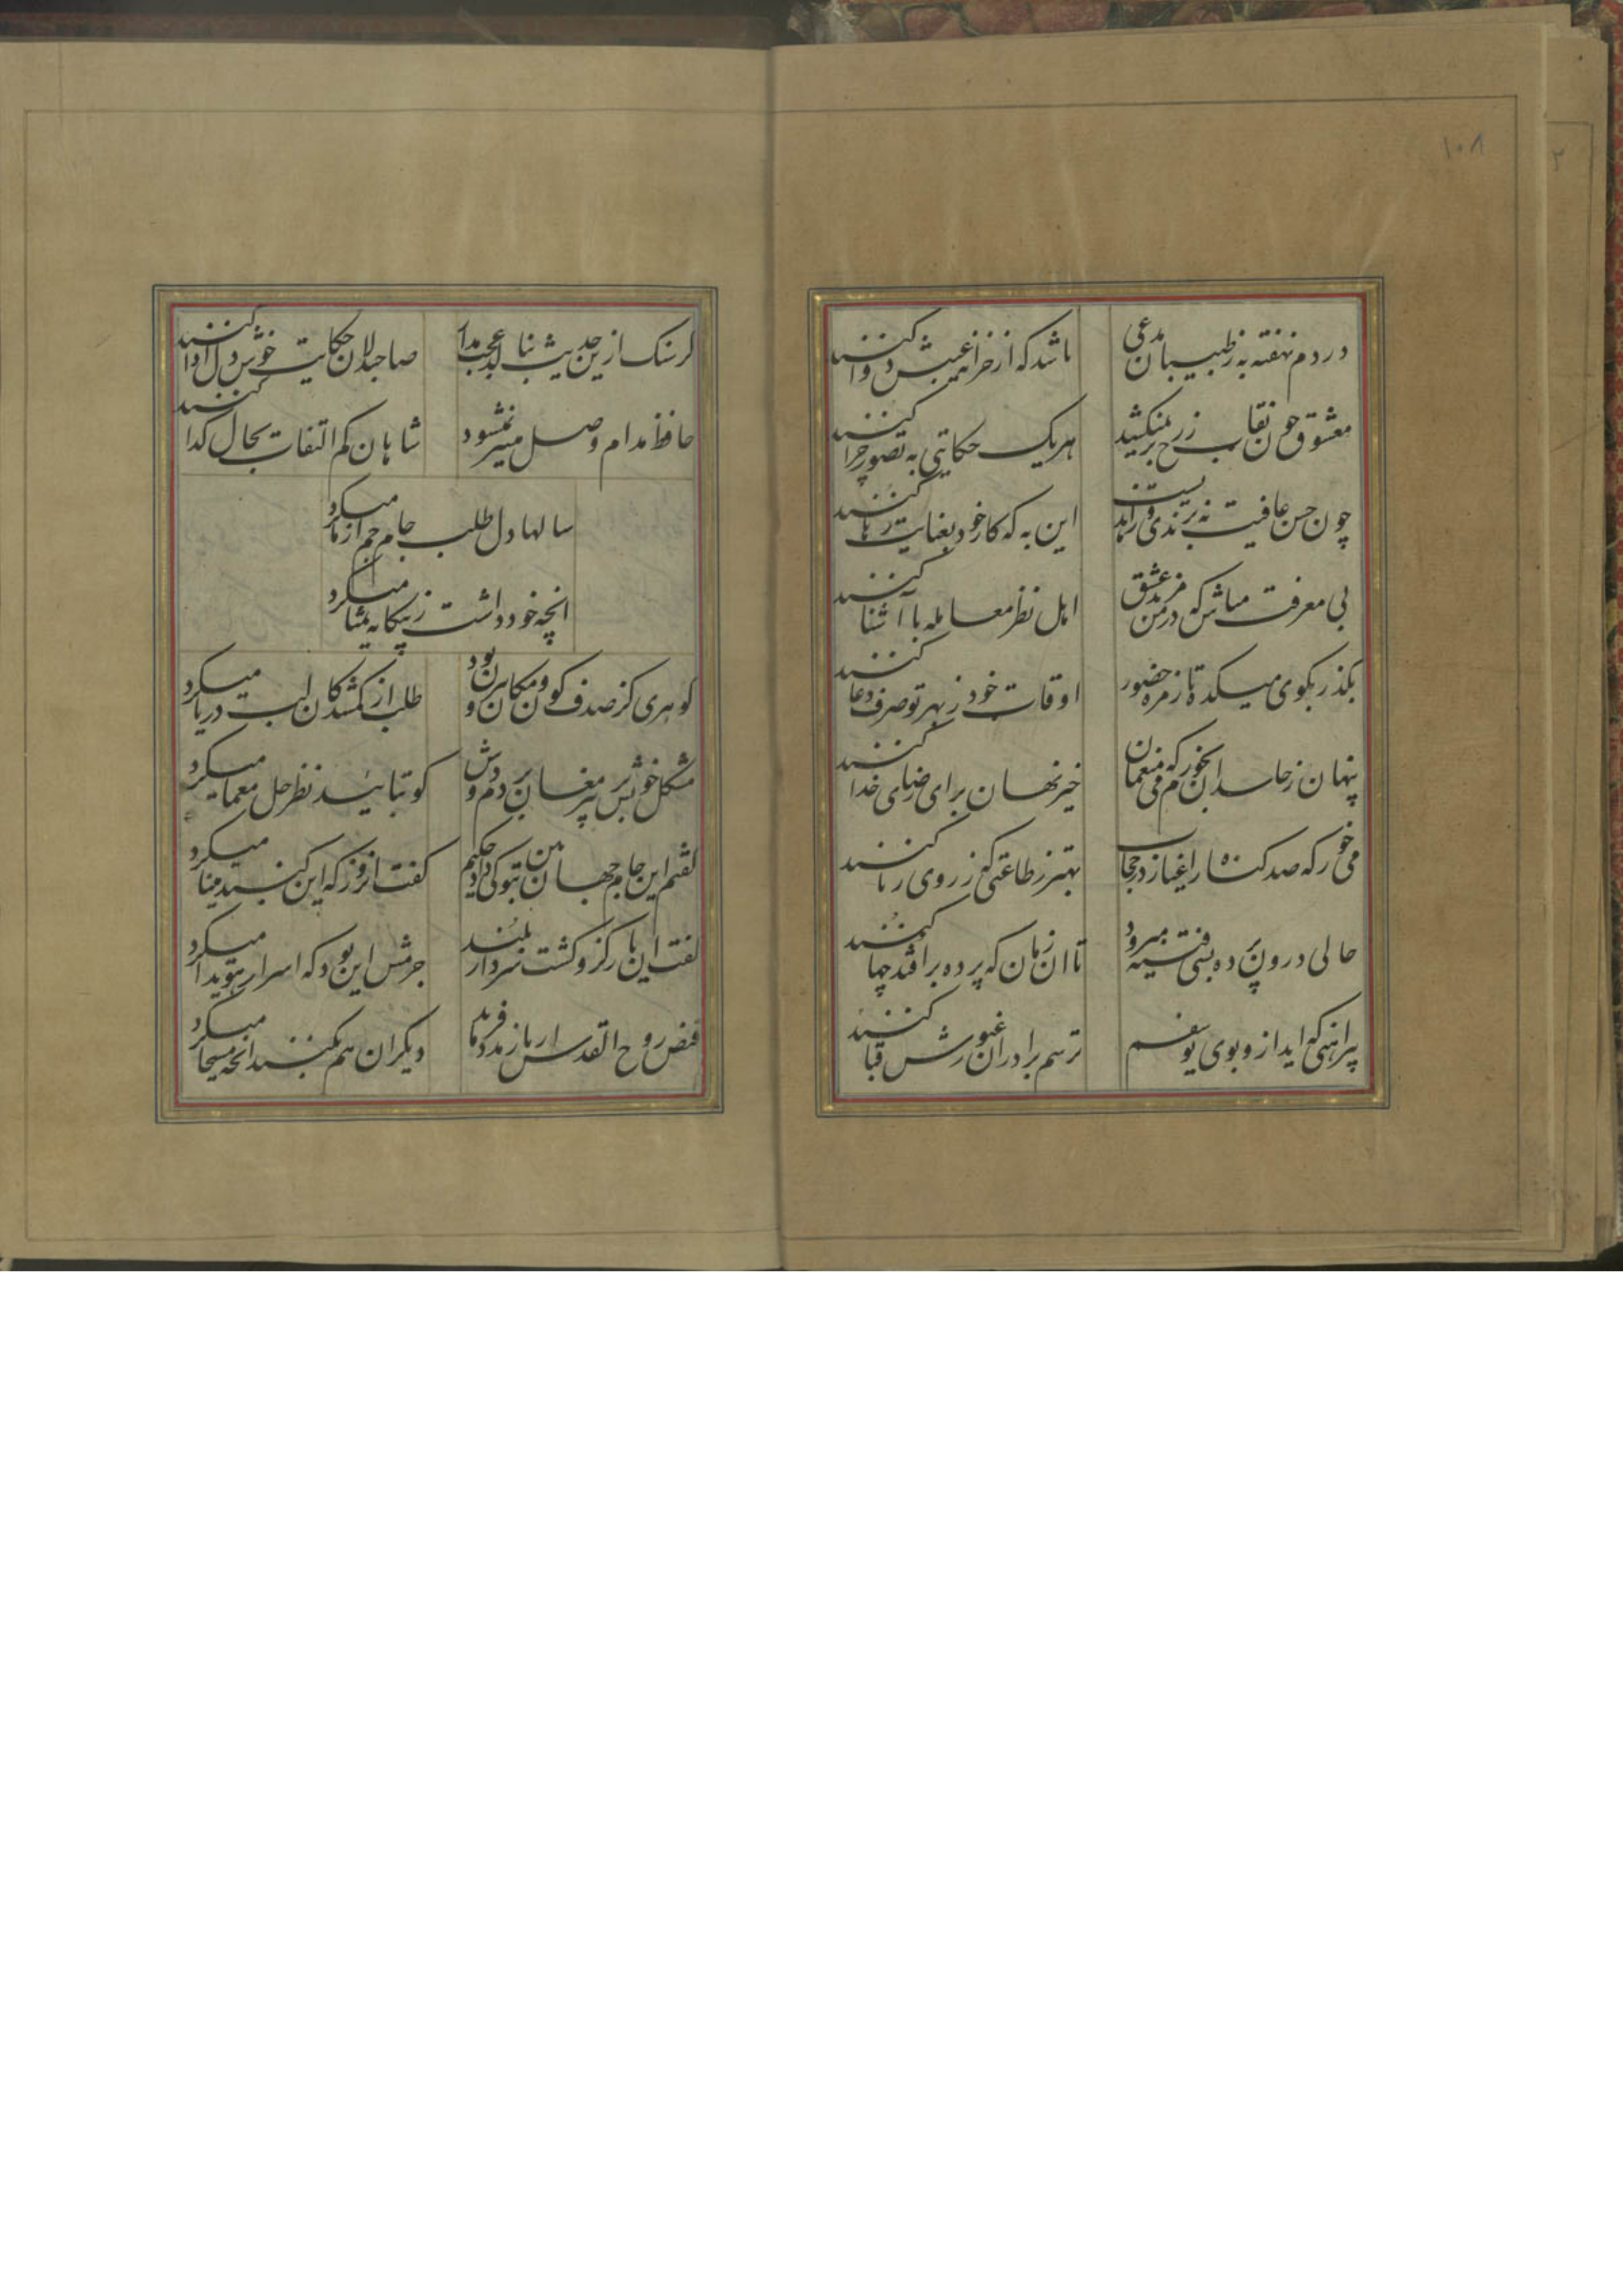 ۱۰۸
دردم نهفته به ز طبیبان مدعی
باشد که از خزانه غیبش دوا کنند
معشوق چون نقاب ز رخ بر نمیکشد
هریک حکایتی به تصور چرا کنند
چون حسن عاقبت نه برندی و زاهدیست
این به که کار خود بعنایت رها کنند
بی معرفت مباش که در من مزید عشق
اهل نظر معامله با آشنا کنند
بگذر بکوی میکده تا زمره حضور
اوقات خود ز بهر تو صرف دعا کنند
پنهان ز حاسدان بخودم خور که منعمان
خیر نهان برای رضای خدا کنند
می خور که صد گناه ز اغیار در حجاب
بهتر ز طاعتی که ز روی ریا کنند
حالی درون پرده بسی فتنه میرود
تا ان زمان که پرده بر افتد چها کنند
پیراهنی که اید ازو بوی یوسفم
ترسم برادران غیورش قبا کنند
گر سنگ ازین حدیث بنالد عجب مدار
صاحبدلان حکایت دل خوش ادا کنند
حافظ مدام وصل میسر نمیشود
شاهان کم التفات بحال گدا کنند
سالها دل طلب جام جم از ما میکرد
انچه خود داشت ز بیگانه تمنا میکرد
گوهری کز صدف کون و مکان بیرون بود
طلب از گمشدگان لب دریا میکرد
مشکل خویش بر پیر مغان بردم دوش
کو بتائید نظر حل معما میکرد
گفتم این جام جهان بین بتو کی داد حکیم
گفت انروز که این گنبد مینا میکرد
گفت ان یار کزو گشت سر دار بلند
جرمش این بود که اسرار هویدا میکرد
فیض روح القدس ار باز مدد فرماید
دیگران هم بکنند انچه مسیحا میکرد